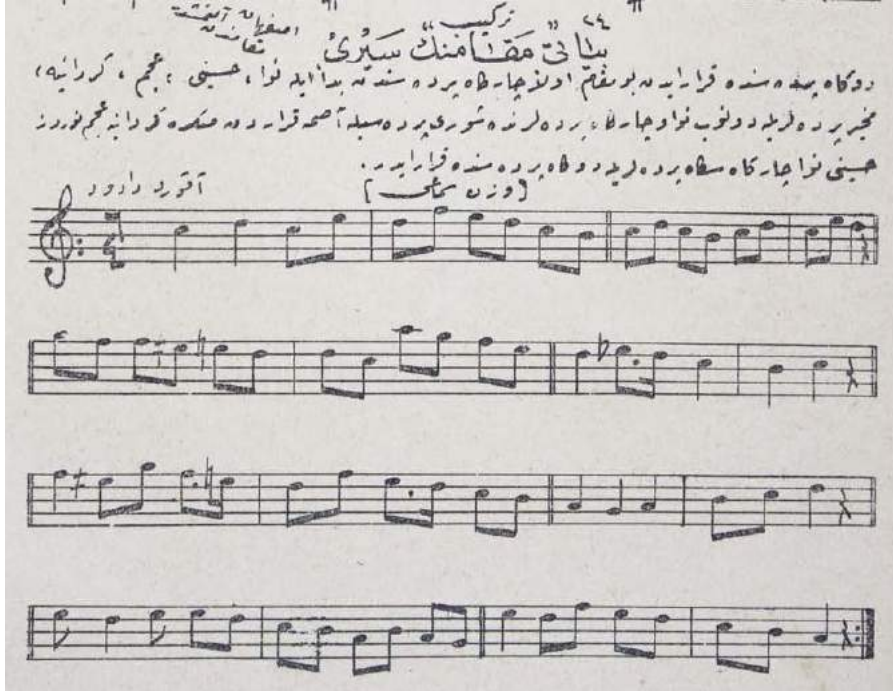 تركيب
٢٤
بياتى مقامنك سيرى
دوكاه پرده سنده قرار ايدن بو مقام اولا چاركاه پرده سندن بدأ ايله نوا، حسينى، عجم، كردانيه،
محير پرده لريله دونوب نوا و چاركاه پرده لرنده شورى پرده سيله آصمه قراردن صكره كردانيه عجم نوروز
حسينى نوا چاركاه سگاه پرده لريله دوكاه پرده سنده قرار ايدر.
[وزن سماعى]
آقورد دادود